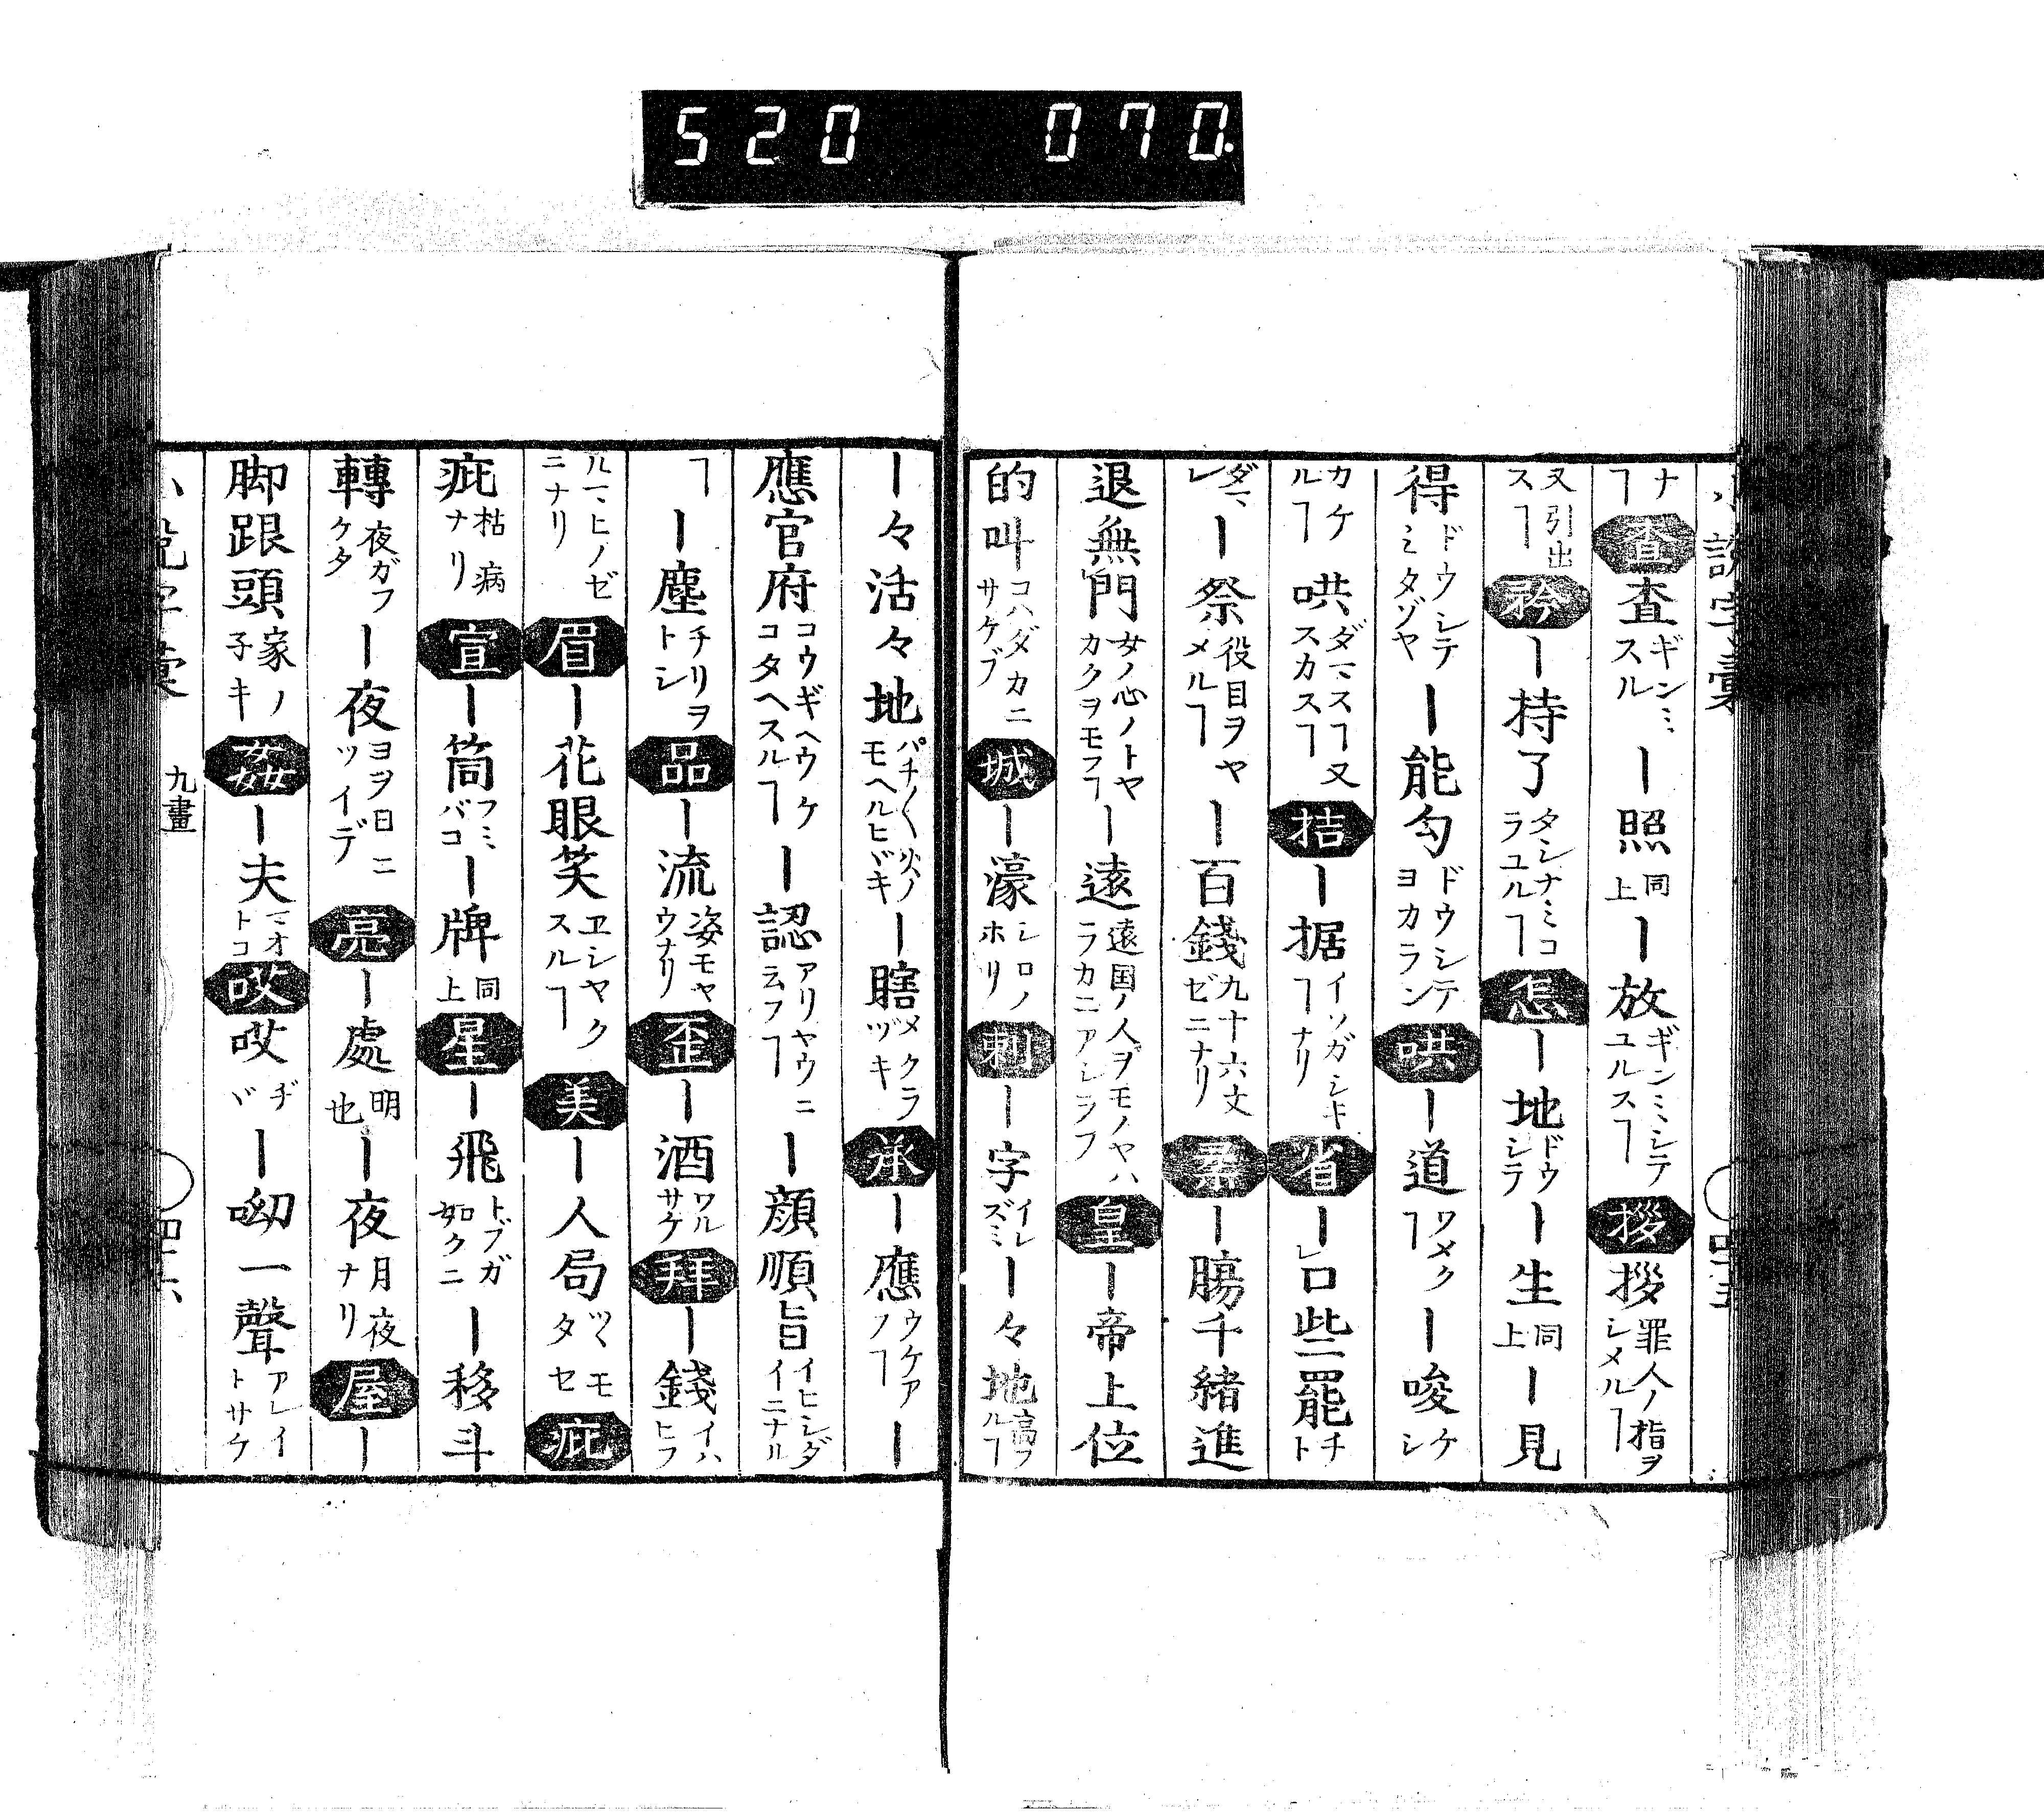 520 070.
ナヿ 査 査 ギンミスル ー照 同上 ー放 ギンミシテユルスヿ 拶 拶 罪人ノ指ヲシメルヿ
又引出スヿ 矜 ー持了 タシナミコラユルヿ 怎 ー地 ドウシテ ー生 同上 ー見
得 ドウシテミタゾヤ ー能勾 ドウシテヨカラン 哄 ー道 ワメクヿ ー唆 ケシ
カケルヿ 哄 ダマスヿ又スカスヿ 拮 ー据 イソガシキヿナリ 省 ー口些罷 チト
ダマレ ー祭 役目ヲヤメルヿ ー百錢 九十六文ゼニナリ 柔 ー腸千緒進
退無門 女ノ心ノトヤカクヲモフヿ ー遠 遠国ノ人ヲモノヤハラカニアシラフ 皇 ー帝上位
的叫 コハダカニサケブ 城 ー濠 シロノホリ 剌 ー字 イレズミ ー々地
ー々活々地 パチ〱火ノモヘルヒヾキ ー瞎 メクラヅキ 承 ー應 ウケアフヿ ー
應官府 コウギヘウケコタヘスルヿ ー認 アリヤウニ云フヿ ー顔順旨 イヒシダイニナル
ヿ ー塵 チリヲトシ 品 ー流 姿モヤウナリ 歪 ー酒 ワルサケ 拜 ー錢 イハヒフ
ルマヒノゼニナリ 眉 ー花眼笑 ヱシヤクスルヿ 美 ー人局 ツヽモタセ 疵
疵 枯病ナリ 宣 ー筒 フミバコ ー牌 同上 星 ー飛 トブガ如クニ ー移斗
轉 夜ガフケタ ー夜 ヨヲ日ニツイデ 亮 ー處 明也 ー夜 月夜ナリ 屋 ー
脚跟頭 家ノ子キ 姦 ー夫 マオトコ 哎 哎 ヂヾ ー呦一聲 アレイトサケ
九畫